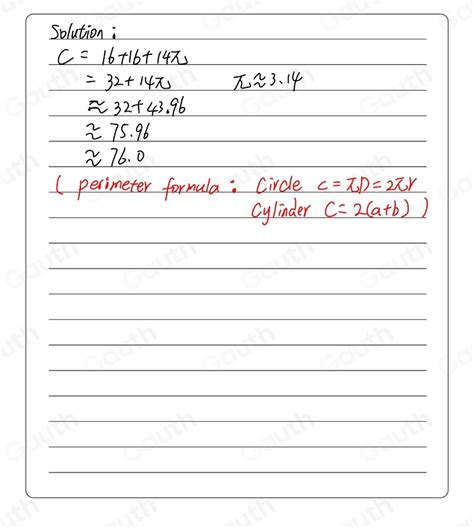 Solution :
C = 16+16+14π
= 32+14π π≈3.14
≈ 32+43.96
≈ 75.96
≈ 76.0
( perimeter formula : Circle C=πD=2πr
Cylinder C=2(a+b) )